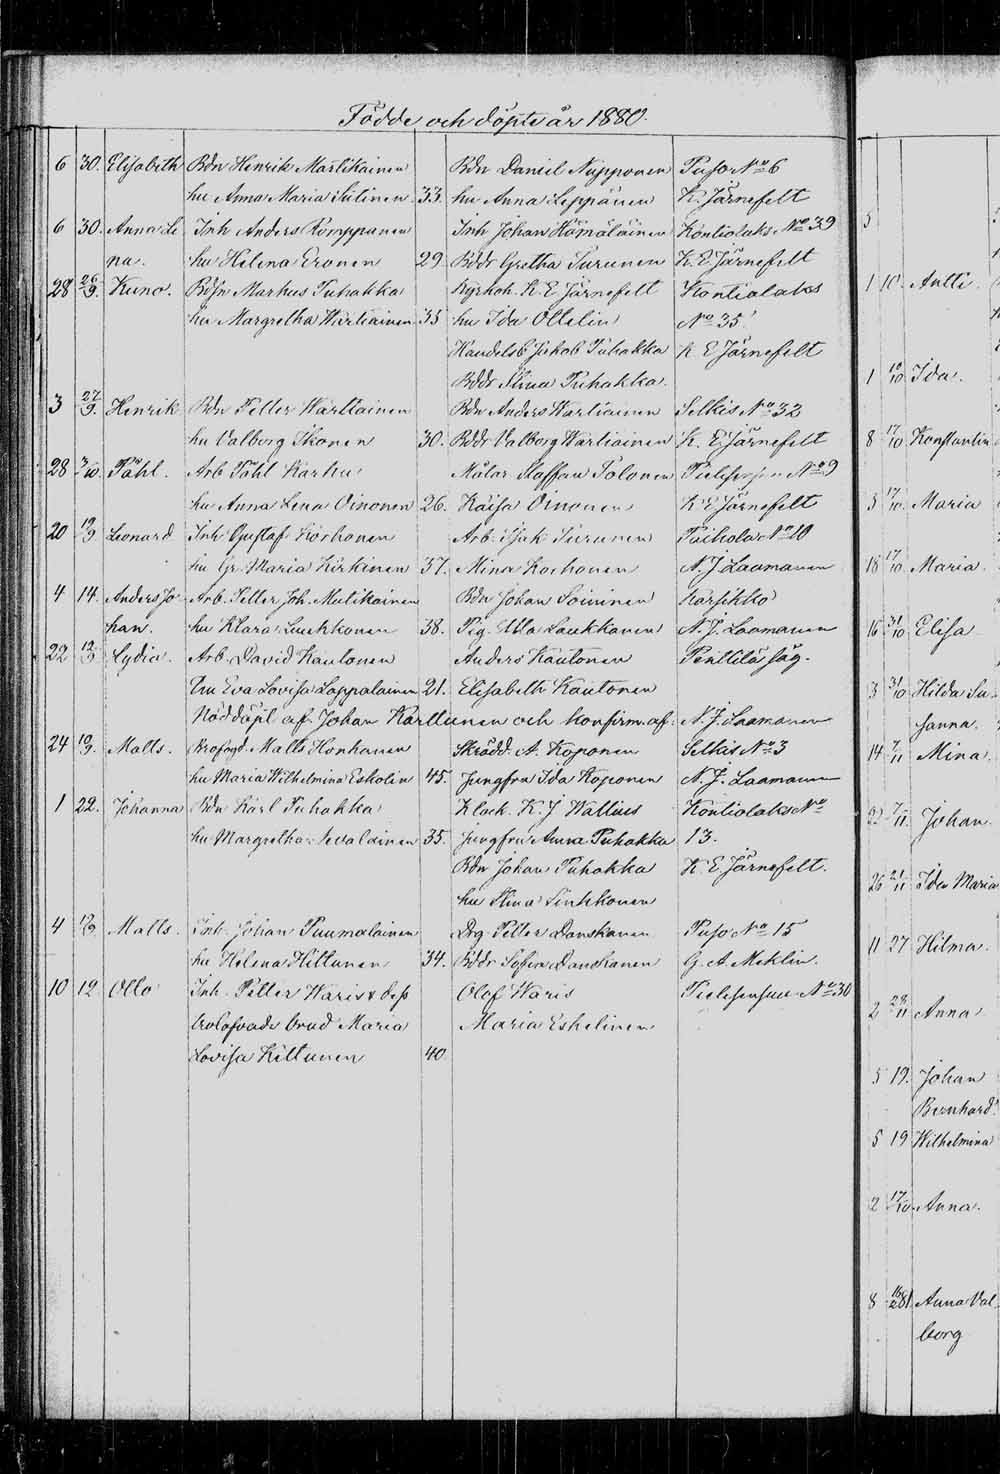 Födde och döpte år 1880.
6 30. Elisabeth Bdn Henrik Martikainen Bdn Daniel Nupponen Puso No 6
hu Anna Maria Siitinen 33. hu Anna Leppänen K. Järnefelt
6 30. Anna Le Inh Anders Romppanen Inh Johan Hämäläinen Kontiolaks No 39
na. hu Helena Eronen 29 Bddr Gretha Turunen K. E. Järnefelt
28 26/9. Kuno. Bdsn Markus Puhakka Kyrkoh. K. E. Järnefelt Kontiolaks
hu Margretha Wartiainen 35 hu Ida Ottelin No 35.
Handelsb. Jakob Puhakka K E Järnefelt
Bddr Stina Puhakka.
3 27/9. Henrik Bdn Petter Wartiainen Bdn Anders Wartiainen Selkis No 32
hu Valborg Ikonen 30. Bddr Valborg Wartiainen K. E. Järnefelt
28 3/10. Påhl. Arb Påhl Karhu Målar Staffan Tolonen No 9
hu Anna Lena Oinonen 26. Kaisa Oinonen K E Järnefelt
20 19/9 Leonard Inh Gustaf Korhonen Arb. Isak Turunen Paihola No 10
hu Gr. Maria Kirkinen 37. Mina Korhonen N. J Laamanen
4 14. Anders Jo- Arb. Petter Joh. Mutikainen Bdn Johan Soininen Karsikko
han. hu Klara Luukkonen 38. Pig. Ulla Laukkanen N. J. Laamanen
22 12/9 Lydia. Arb. David Kautonen Anders Kautonen Penttilä såg.
hu Eva Lovisa Lappalainen 21. Elisabeth Kautonen
Nöddöpt af Johan Karttunen och konfirm. af: N. J. Laamanen
24 19/9. Matts. Brofogd. Matts Honkanen Skrädd. A. Koponen Selkis No 3
hu Maria Wilhelmina Eskolin 45. Jungfru Ida Koponen N. J. Laamanen
1 22. Johanna Bdn Karl Puhakka Klock. K. J Wallius Kontiolaks No
hu Margretha Nevalainen 35. Jungfru Anna Puhakka 13.
Bdn Johan Puhakka K. E Järnefelt.
hu Stina Sinkkonen
4 Matts. Inh. Johan Puumalainen Drg Petter Danskanen Puso No 15
hu Helena Hiltunen 34. Bddr Sofia Danskanen G. A. Meklin.
10 12 Otto Inh. Petter Waris & dess Olof Waris Pielisensuu No 30
trolofvade brud Maria Maria Eskelinen
Lovisa Kiltunen 40
5
1 10. Antti.
1 10/10 Ida.
8 17/10 Konstantin
3 17/10. Maria
18 17/10. Maria.
16 31/10 Elisa
3 31/10 Hilda Su-
sanna.
14 7/11 Mina.
22 7/11. Johan.
26 21/11 Ida Maria
11 27 Hilma.
2 28/11 Anna
5 19. Johan
Bernhard.
5 19 Wilhelmina
2 17/10. Anna.
8 Anna Val-
borg